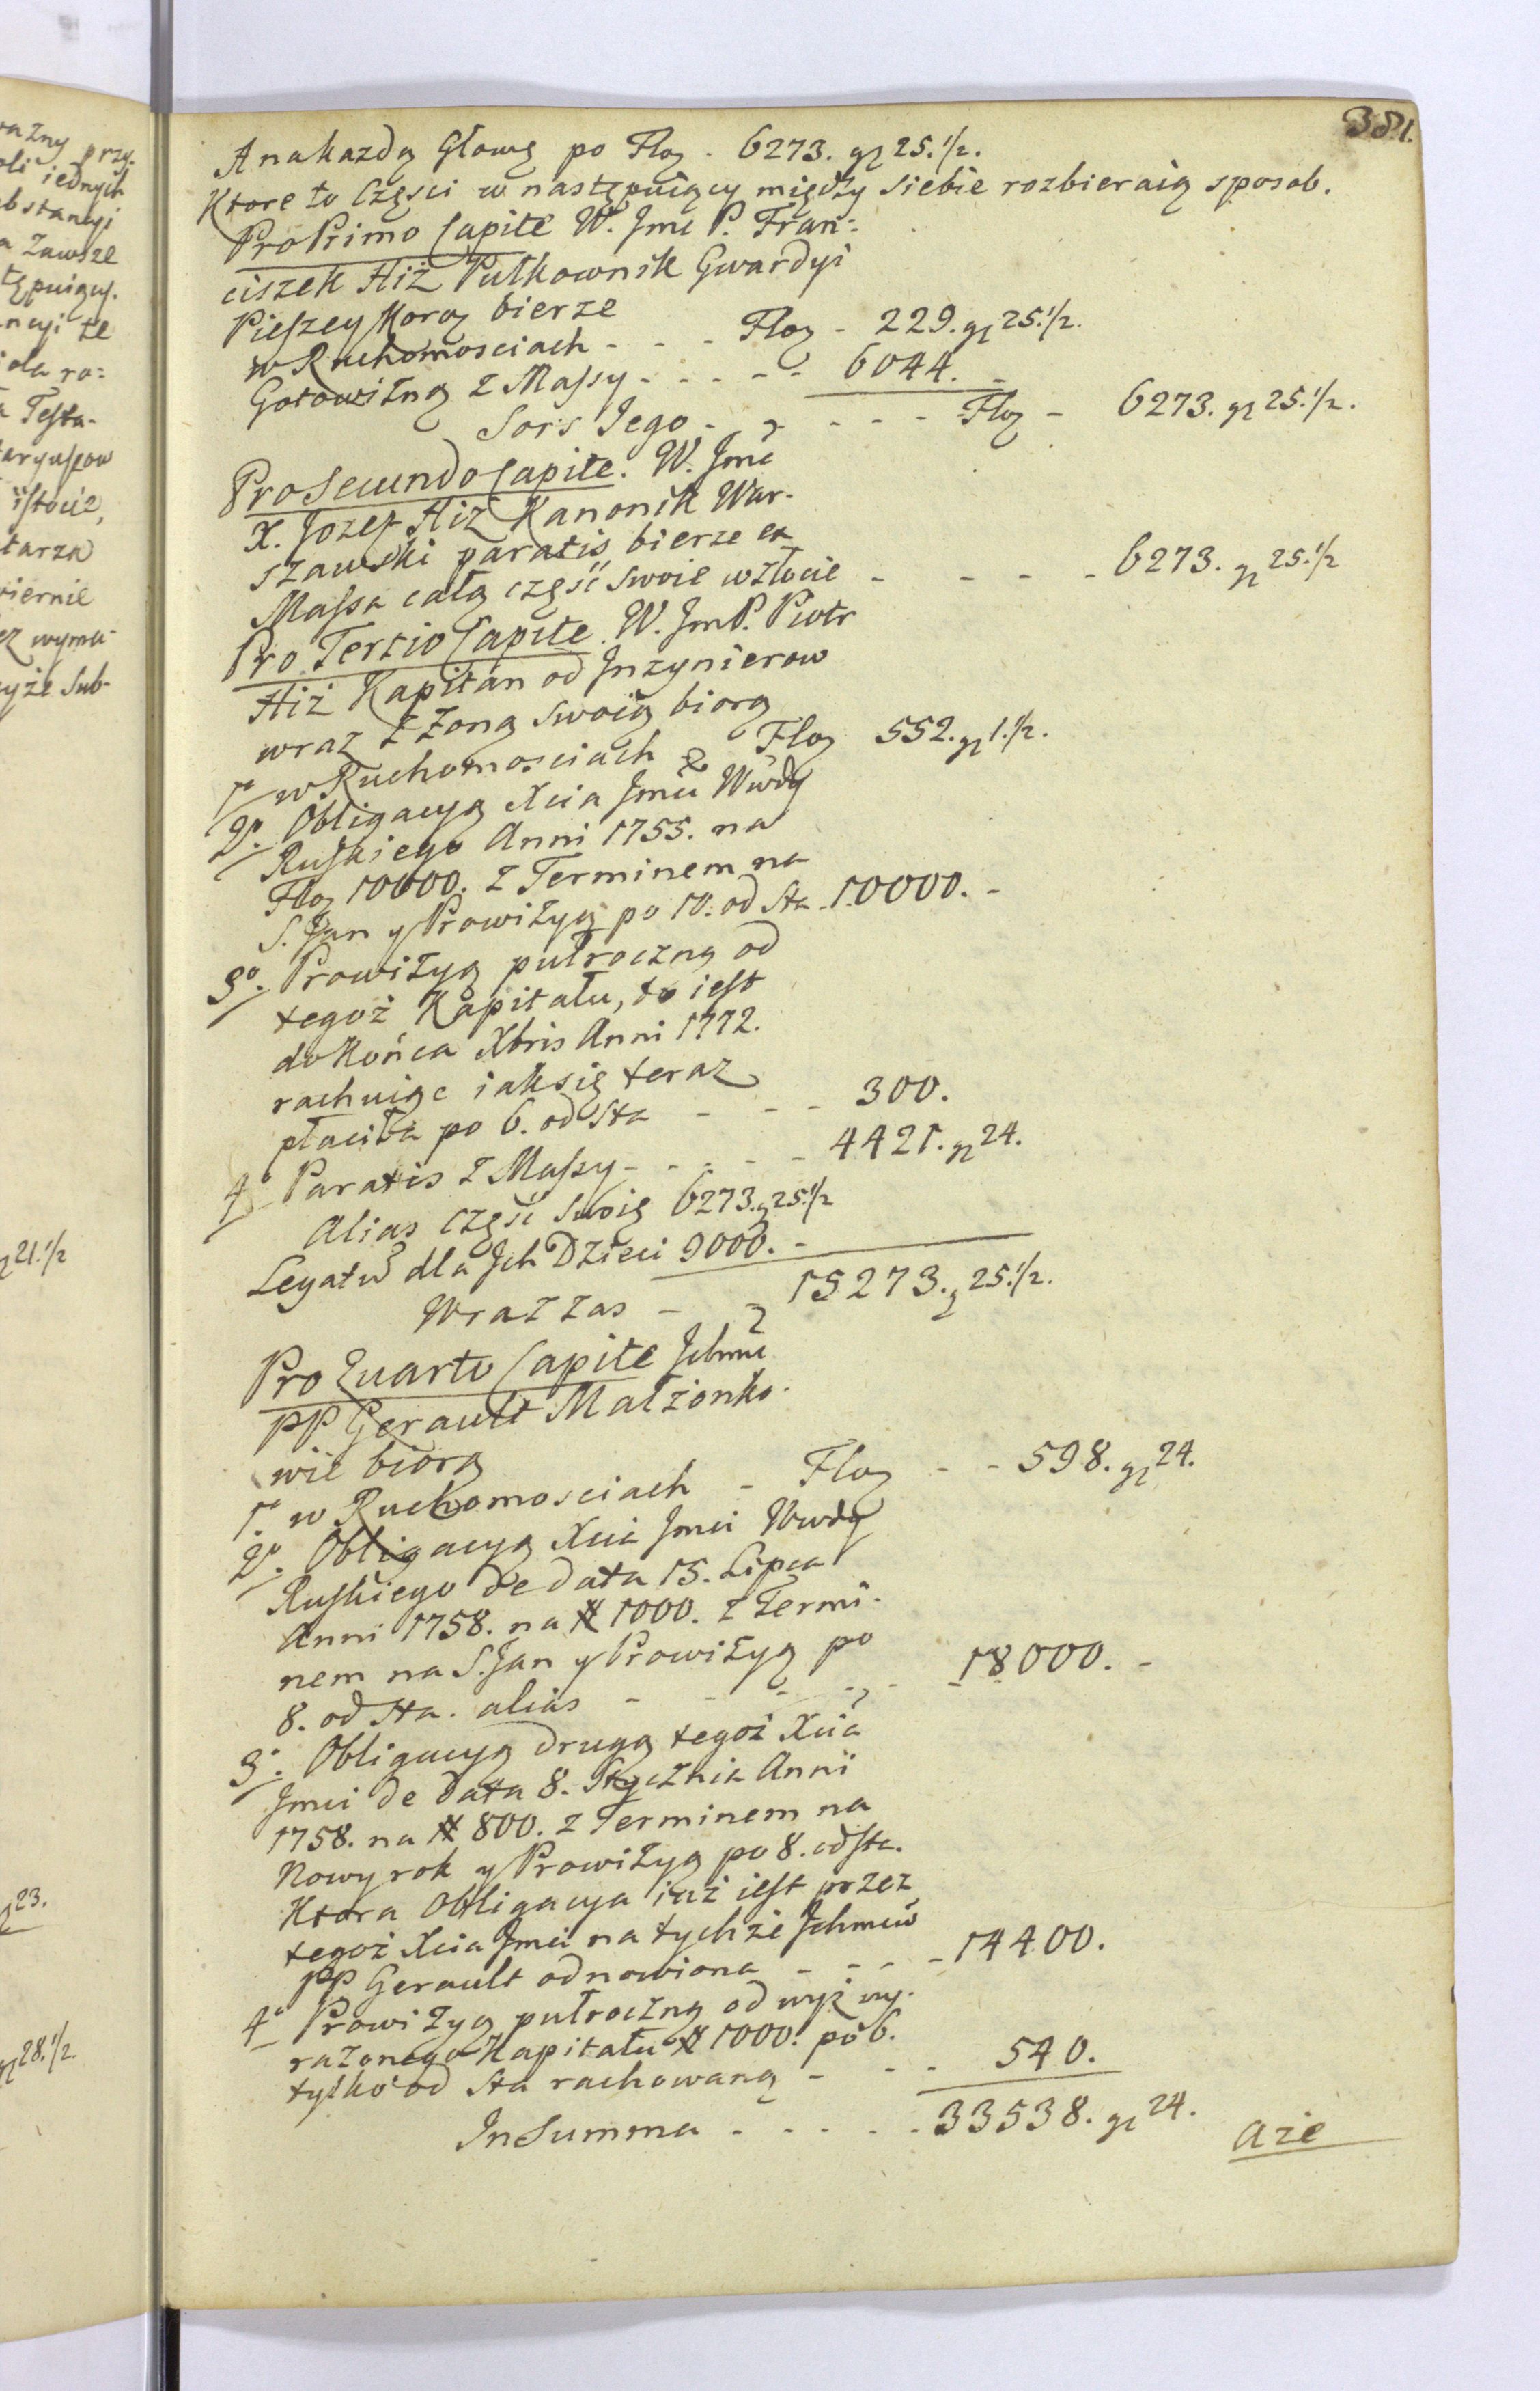 381.
A na kazdą Głowę po Flor. 6273. gr 25.1/2.
Ktore to Części w następuiący między siebie rozbieraią sposob.
Pro Primo Capite W. Jmć P. Fran:
ciszek Hiż Pułkownik Gwardyi
Pieszey Koroy bierze
w Ruchomosciach - - - Flor - 229. gr 25.1/2.
Gotowizną z Massy - - - - - 6044. -
Sors Jego - - - - - Flor - 6273. gr 25.1/2.
Pro Secundo Capite. W. Jmć
X. Jozef Hiż Kanonik War-
szawski paratis bierze ex
Massa całą część swoie w złocie - - - - 6273. gr 25.1/2
Pro Tertio Capite. W. JmP. Piotr
Hiż Kapitan od Inzynierow
wraz z Zoną swoią biorą
1o w Ruchomosciach Flor 552. gr 1.1/2.
2o. Obligacyą Xcia Jmći Wwdy
Ruskiego Anni 1755. na
Flor 10000. z Terminem na
S. Jan y Prowizyą po 10. od Sta - 10000. -
3o. Prowizyą pułroczną od
tegoż Kapitału, to iest
do Końca Xbris Anni 1772.
rachuiąc iak się teraz
płaciła po 6. od Sta - - - 300.
4o Paratis z Massy - - - - - 4421. gr 24.
Alias część swoię 6273. gr 25.1/2
Legatũ dla Jch Dzieci 9000. -
Wraz zas - - 15273. gr 25.1/2.
Pro Quarto Capite Jchmć
PP Gerault Małżonko-
wie biorą
1o w Ruchomosciach - Flor - - 598. gr 24.
2o. Obligacyą Xcia Jmci Wwdy
Ruskiego de data 15. Lipca
Anni 1758. na # 1000. z Termi-
nem na S. Jan y Prowizyą po
8. od Sta. alias - - - - - 18000. -
3o. Obligacyą drugą tegoż Xcia
Jmci de data 8. Stycznia Anni
1758. na # 800. z Terminem na
Nowy rok y Prowizyą po 8. od Sta.
Ktora Obligacya iuż iest przez
tegoż Xcia Jmci na tychże Jchmciow
PP Gerault odnowiona - - - - 14400.
4o Prowizyą pułroczną od wyż wy-
rażonego Kapitału # 1000. po 6.
tylko od Sta rachowaną - - - 540.
In Summa - - - - - 33538. gr 24.
Aże